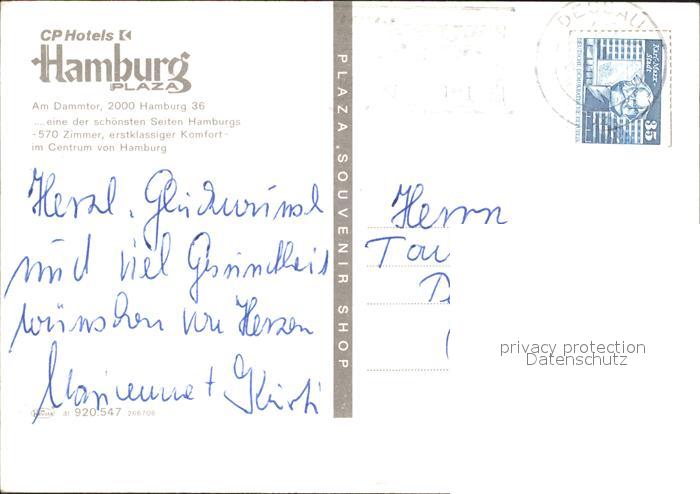 CP Hotels
Hamburg
PLAZA
Am Dammtor, 2000 Hamburg 36
....eine der schönsten Seiten Hamburgs
-570 Zimmer, erstklassiger Komfort-
im Centrum von Hamburg
Herzl. Glückwünsche
und viel Gesundheit
wünschen von Herzen
Marianne + Kurti
920.547 266708
PLAZA SOUVENIR SHOP
DESSAU
Karl-Marx-
Stadt
DEUTSCHE DEMOKRATISCHE REPUBLIK
35
Herrn
privacy protection
Datenschutz